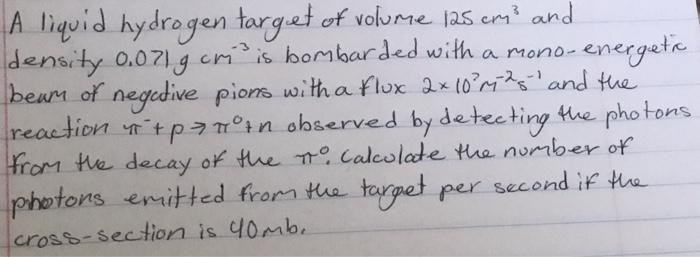 A liquid hydrogen target of volume 125 cm³ and
density 0.071 g cm⁻³ is bombarded with a mono-energetic
beam of negative pions with a flux 2×10⁷ m⁻²s⁻¹ and the
reaction π⁻+p→π⁰+n observed by detecting the photons
from the decay of the π⁰. Calculate the number of
photons emitted from the target per second if the
cross-section is 40mb.